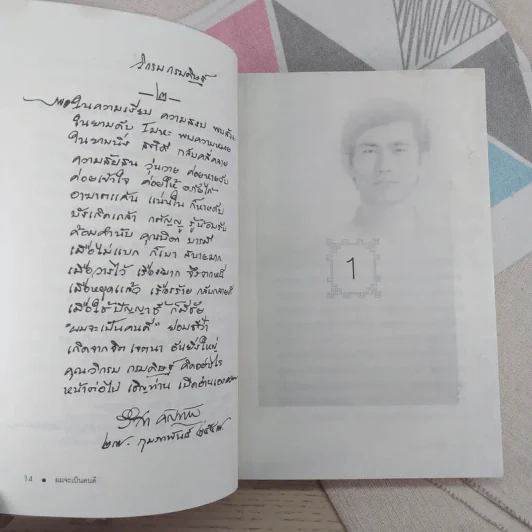 วิกรม กรมดิษฐ์
—๒—
ในความเงียบ ความสงบ พบสันติ
ในยามดับ โมหะ พบความหมาย
ในยามนิ่ง สติใส กลับคลี่คลาย
ความสับสน วุ่นวาย ค่อยหายดับ
ค่อยเข้าใจ ค่อยให้ อภัยได้
อาฆาตแค้น แน่นใน ก็หายดับ
บังเกิดเกล้า กตัญญู รู้น้อมรับ
ค้อมคำนับ คุณบิดา มารดา
เมื่อไม่แบก ก็เบา สบายมาก
เมื่อวางไว้ เรื่องมาก จึงจากหนี
เมื่อหยุดแล้ว เรื่องร้าย กลับกลายดี
เมื่อใช้ปัญญาชี้ ก็มีชัย
"ผมจะเป็นคนดี" ย่อมชี้ว่า
เกิดจากจิต เจตนา อันยิ่งใหญ่
คุณวิกรม กรมดิษฐ์ คิดอย่างไร
หน้าต่อไป เชิญท่าน เปิดอ่านเอง
๒๗ กุมภาพันธ์ ๒๕๔๗
14 • ผมจะเป็นคนดี
1